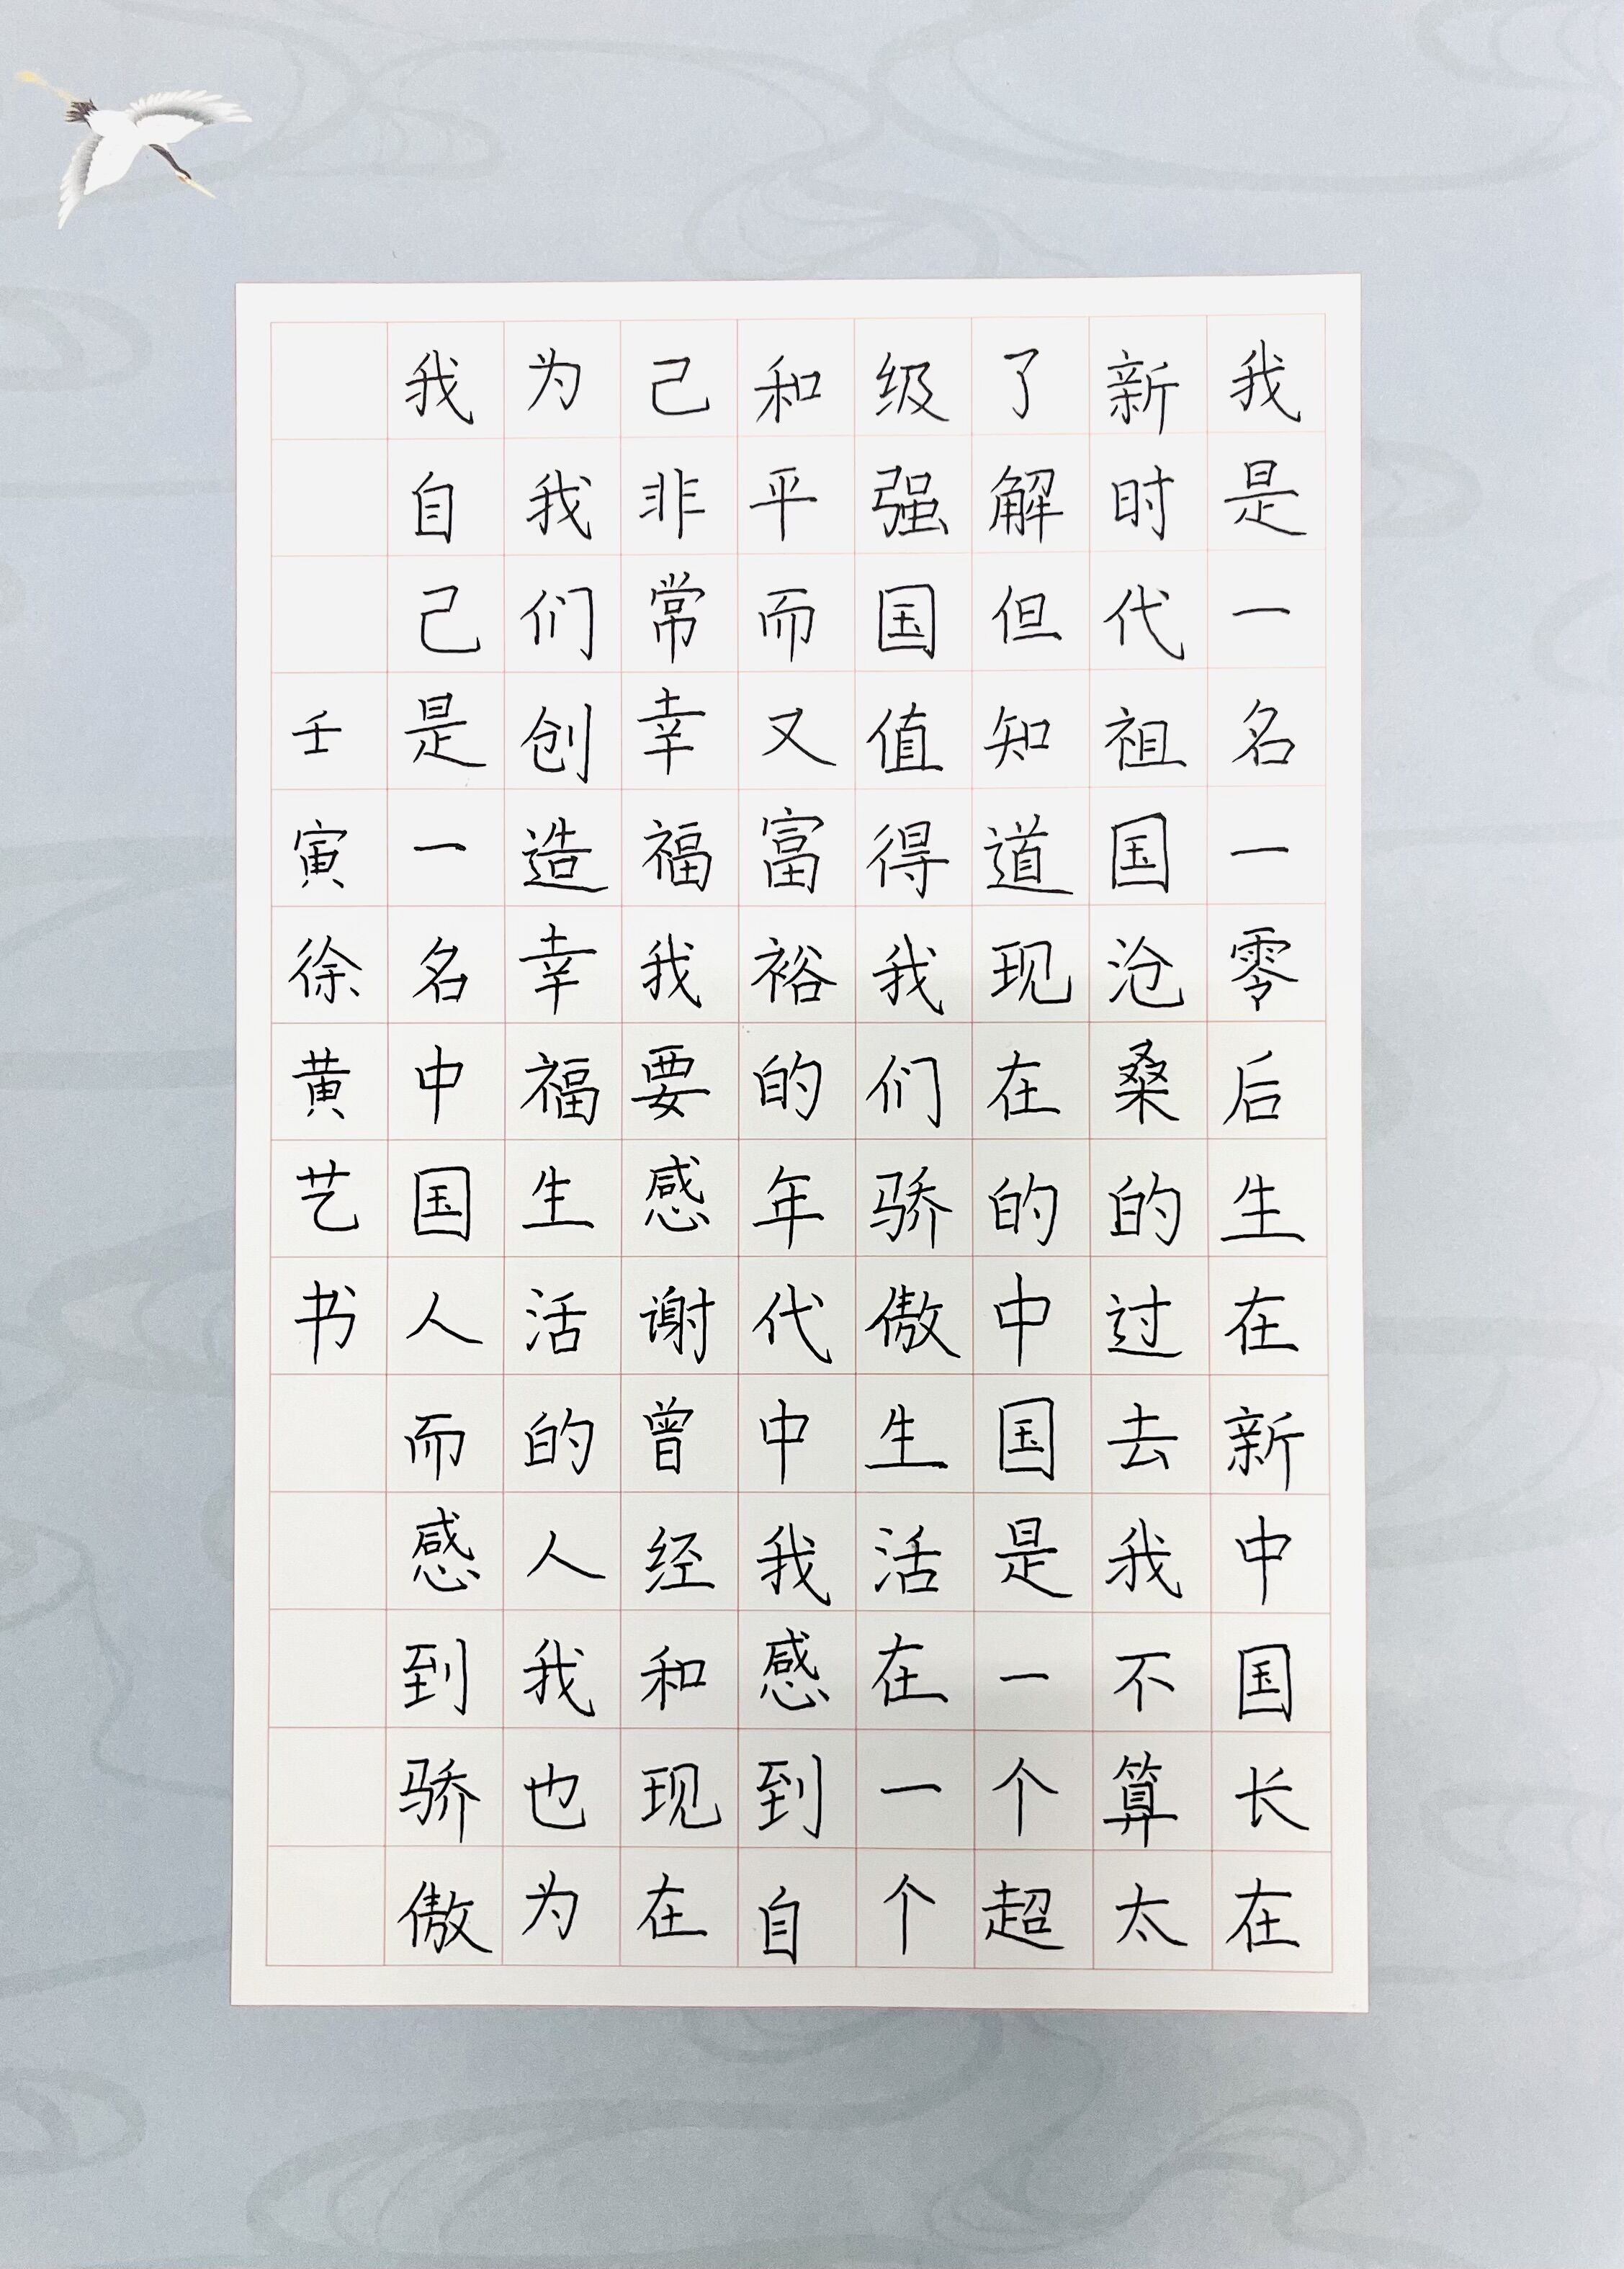 我是一名一零后生在新中国长在
新时代祖国沧桑的过去我不算太
了解但知道现在的中国是一个超
级强国值得我们骄傲生活在一个
和平而又富裕的年代中我感到自
己非常幸福我要感谢曾经和现在
为我们创造幸福生活的人我也为
我自己是一名中国人而感到骄傲
壬寅徐黄艺书